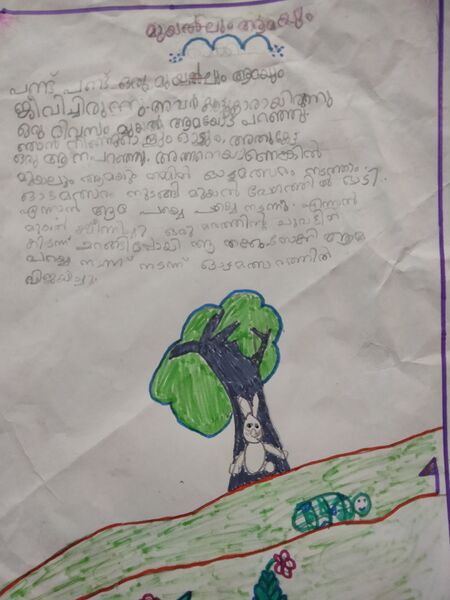 മുയലും ആമയും
പണ്ട് പണ്ട് ഒരു മുയലും ആമയും
ജീവിച്ചിരുന്നു. അവർ കൂട്ടുകാരായിരുന്നു
ഒരു ദിവസം മുയൽ ആമയോട് പറഞ്ഞു.
ഞാൻ ഓട്ടം,
ഒരു ആമ പറഞ്ഞു. അങ്ങനെയാണെങ്കിൽ
മുയലും ആമയും തമ്മിൽ ഓട്ടമത്സരം നടത്താം.
ഓട്ടമത്സരം തുടങ്ങി മുയൽ വേഗത്തിൽ ഓടി.
എന്നാൽ ആമ പയ്യെ പയ്യെ നടന്നു. എന്നാൽ
മുയൽ ക്ഷീണിച്ചു ഒരു മരത്തിന്റെ ചുവട്ടിൽ
കിടന്ന് ഉറങ്ങിപ്പോയി ആ തക്കം നോക്കി ആമ
പയ്യെ നടന്ന് നടന്ന് ഓട്ടമത്സരത്തിൽ
വിജയിച്ചു.